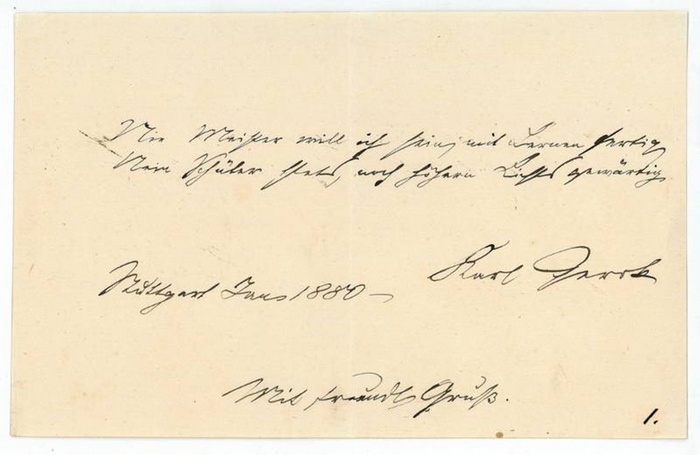 Nie Meister will ich sein, mit Lernen fertig,
Nein Schüler stets, noch höhern Lichts gewärtig
Karl Gerok
Stuttgart Jan 1880 –
Mit freundl Gruß.
1.